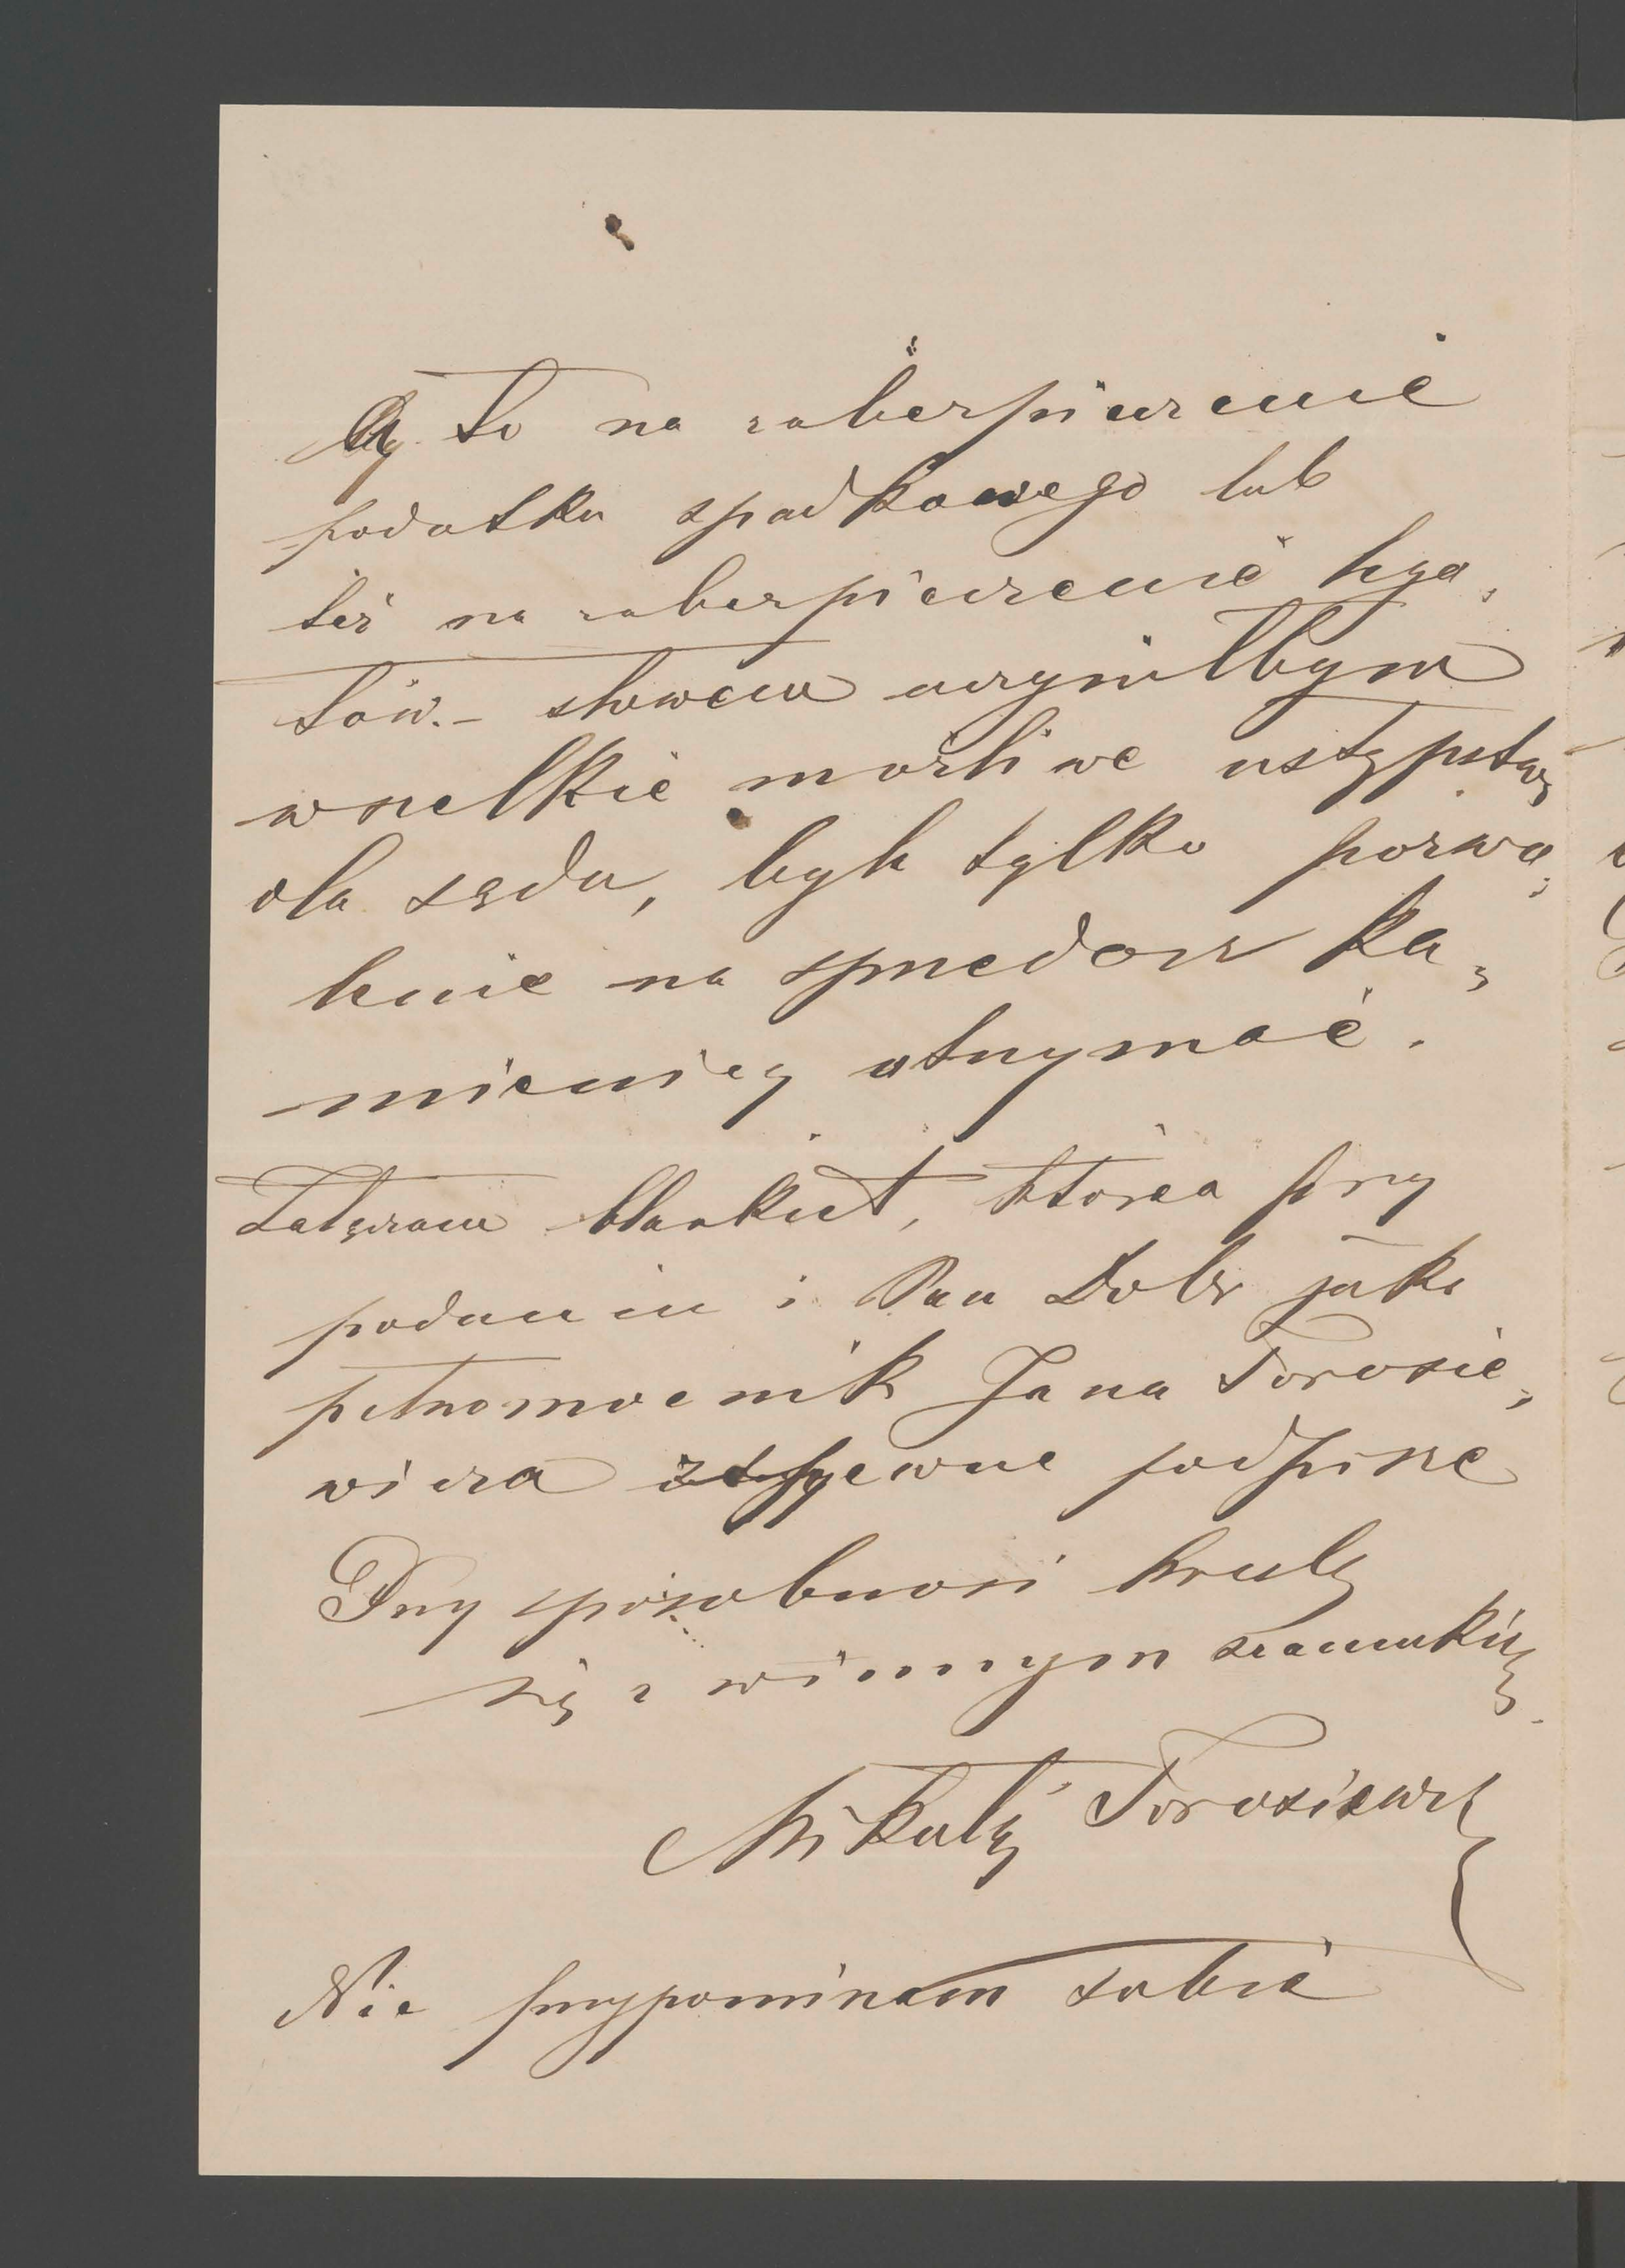 Czy to na zabezpieczenie
podatku spadkowego lub
też na zabezpieczenie lega„
tów. – słowem uczyniłbym
wszelkie możliwe ustępstwa
dla sądu, byle tylko pozwo„
lenie na sprzedarz ka„
mienicy otrzymać.
Załączam blankiet, którea przy
podaniu i Pan Dobr jako
pełnomocnik Jana Torosie„
wicza zapewne podpisze
Przy sposobności kreslę
się z winnym szacunkiem
Mikołaj Torosiewicz
Nie przypominam sobie